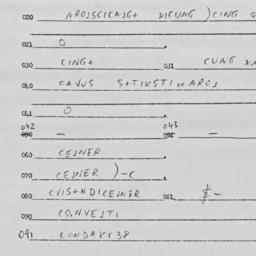 020 AROJSCICAJG+ DICUNG )CING
021 0
030 CING+ 031 CUNG
040 CAVUS S+TIKSTI AROJ
041 0
042 — 043 —
060 CEJNER
070 CEJNER )-C
080 CVIS+NDICEJNER 081 $-
090 CO,NVESTI
091 KONDAKT38